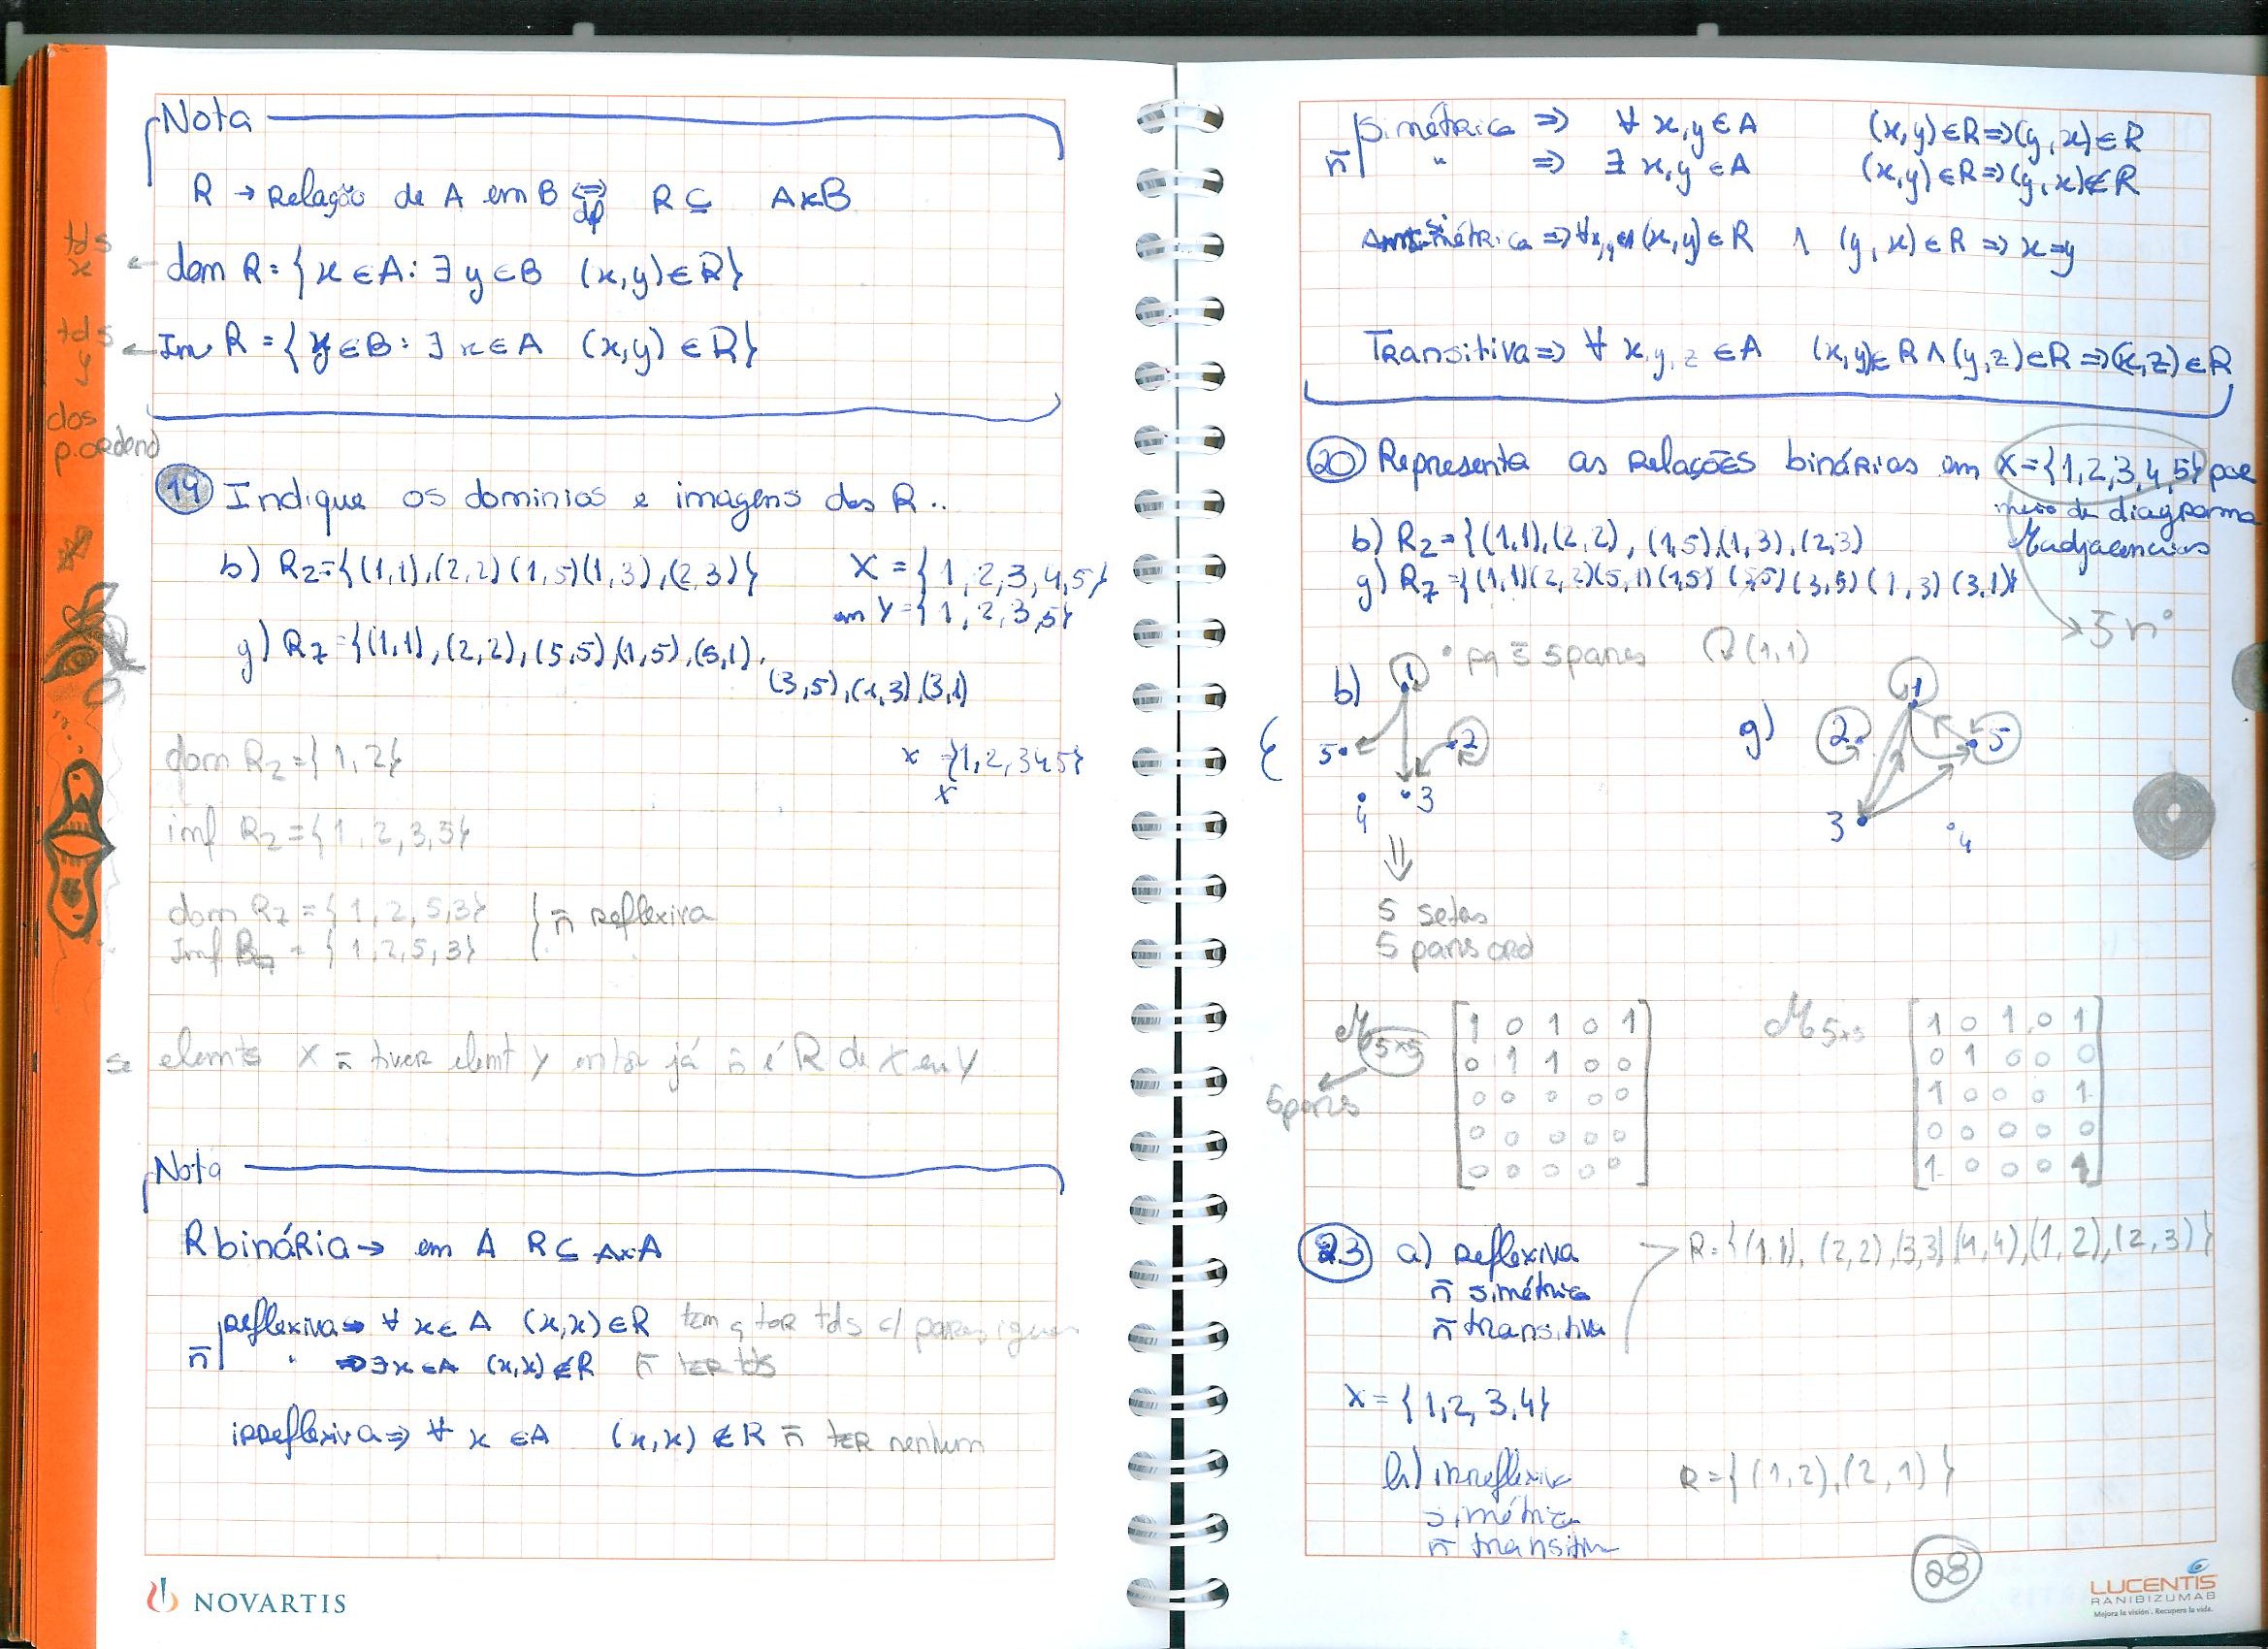 Nota
R → Relação de A em B ⟺ df R ⊆ A×B
tds x ← dom R = { x ∈ A : ∃ y ∈ B (x,y) ∈ R }
tds y ← Im R = { y ∈ B : ∃ x ∈ A (x,y) ∈ R }
dos
p. ordend
19 Indique os dominios e imagens das R..
b) R2 = {(1,1),(2,2)(1,5)(1,3),(2,3)} X = {1,2,3,4,5}
em Y = {1,2,3,5}
g) R7 = {(1,1),(2,2),(5,5),(1,5),(5,1),
(3,5),(1,3),(3,1)
dom R2 = {1,2} x = {1,2,3 4 5}
x
imf R2 = {1,2,3,5}
dom R7 = {1,2,5,3} } n̄ reflexiva
Imf R7 = {1,2,5,3}
se elemts X n̄ tiver elemt Y então já n̄ é R de X em Y
Nota
R binária → em A R ⊆ A×A
reflexiva ⇒ ∀ x ∈ A (x,x) ∈ R tem q ter tds c/ pares iguais
n̄ " ⇒ ∃ x ∈ A (x,x) ∉ R n̄ ter tds
irreflexiva ⇒ ∀ x ∈ A (x,x) ∉ R n̄ ter nenhum
NOVARTIS
simétrica ⇒ ∀ x,y ∈ A (x,y) ∈ R ⇒ (y,x) ∈ R
n̄ " ⇒ ∃ x,y ∈ A (x,y) ∈ R ⇒ (y,x) ∉ R
Antissimétrica ⇒ ∀x,y ∈A (x,y) ∈ R ∧ (y,x) ∈ R ⇒ x=y
Transitiva ⇒ ∀ x,y,z ∈ A (x,y) ∈ R ∧ (y,z) ∈ R ⇒ (x,z) ∈ R
20 Representa as relações binárias em X = {1,2,3,4,5} por
meio de diagrama
M adjacencias
b) R2 = {(1,1),(2,2),(1,5),(1,3),(2,3)
g) R7 = {(1,1)(2,2)(5,1)(1,5)(5,5)(3,5)(1,3)(3,1)}
→ 5 nº
pq 5 pares (1,1)
b) 1 5 2 4 3
g) 1 2 5 3 4
⇓
5 setas
5 pares ord
M 5×5
5 pares
1 0 1 0 1
0 1 1 0 0
0 0 0 0 0
0 0 0 0 0
0 0 0 0 0
M 5×5
1 0 1 0 1
0 1 0 0 0
1 0 0 0 1
0 0 0 0 0
1 0 0 0 1
23 a) reflexiva R = {(1,1), (2,2), (3,3) (4,4), (1,2), (2,3)}
n̄ simétrica
n̄ transitiva
X = {1,2,3,4}
b) irreflexiva R = {(1,2),(2,1)}
simétrica
n̄ transitiva
28
LUCENTIS
RANIBIZUMAB
Mejora la visión. Recupera la vida.